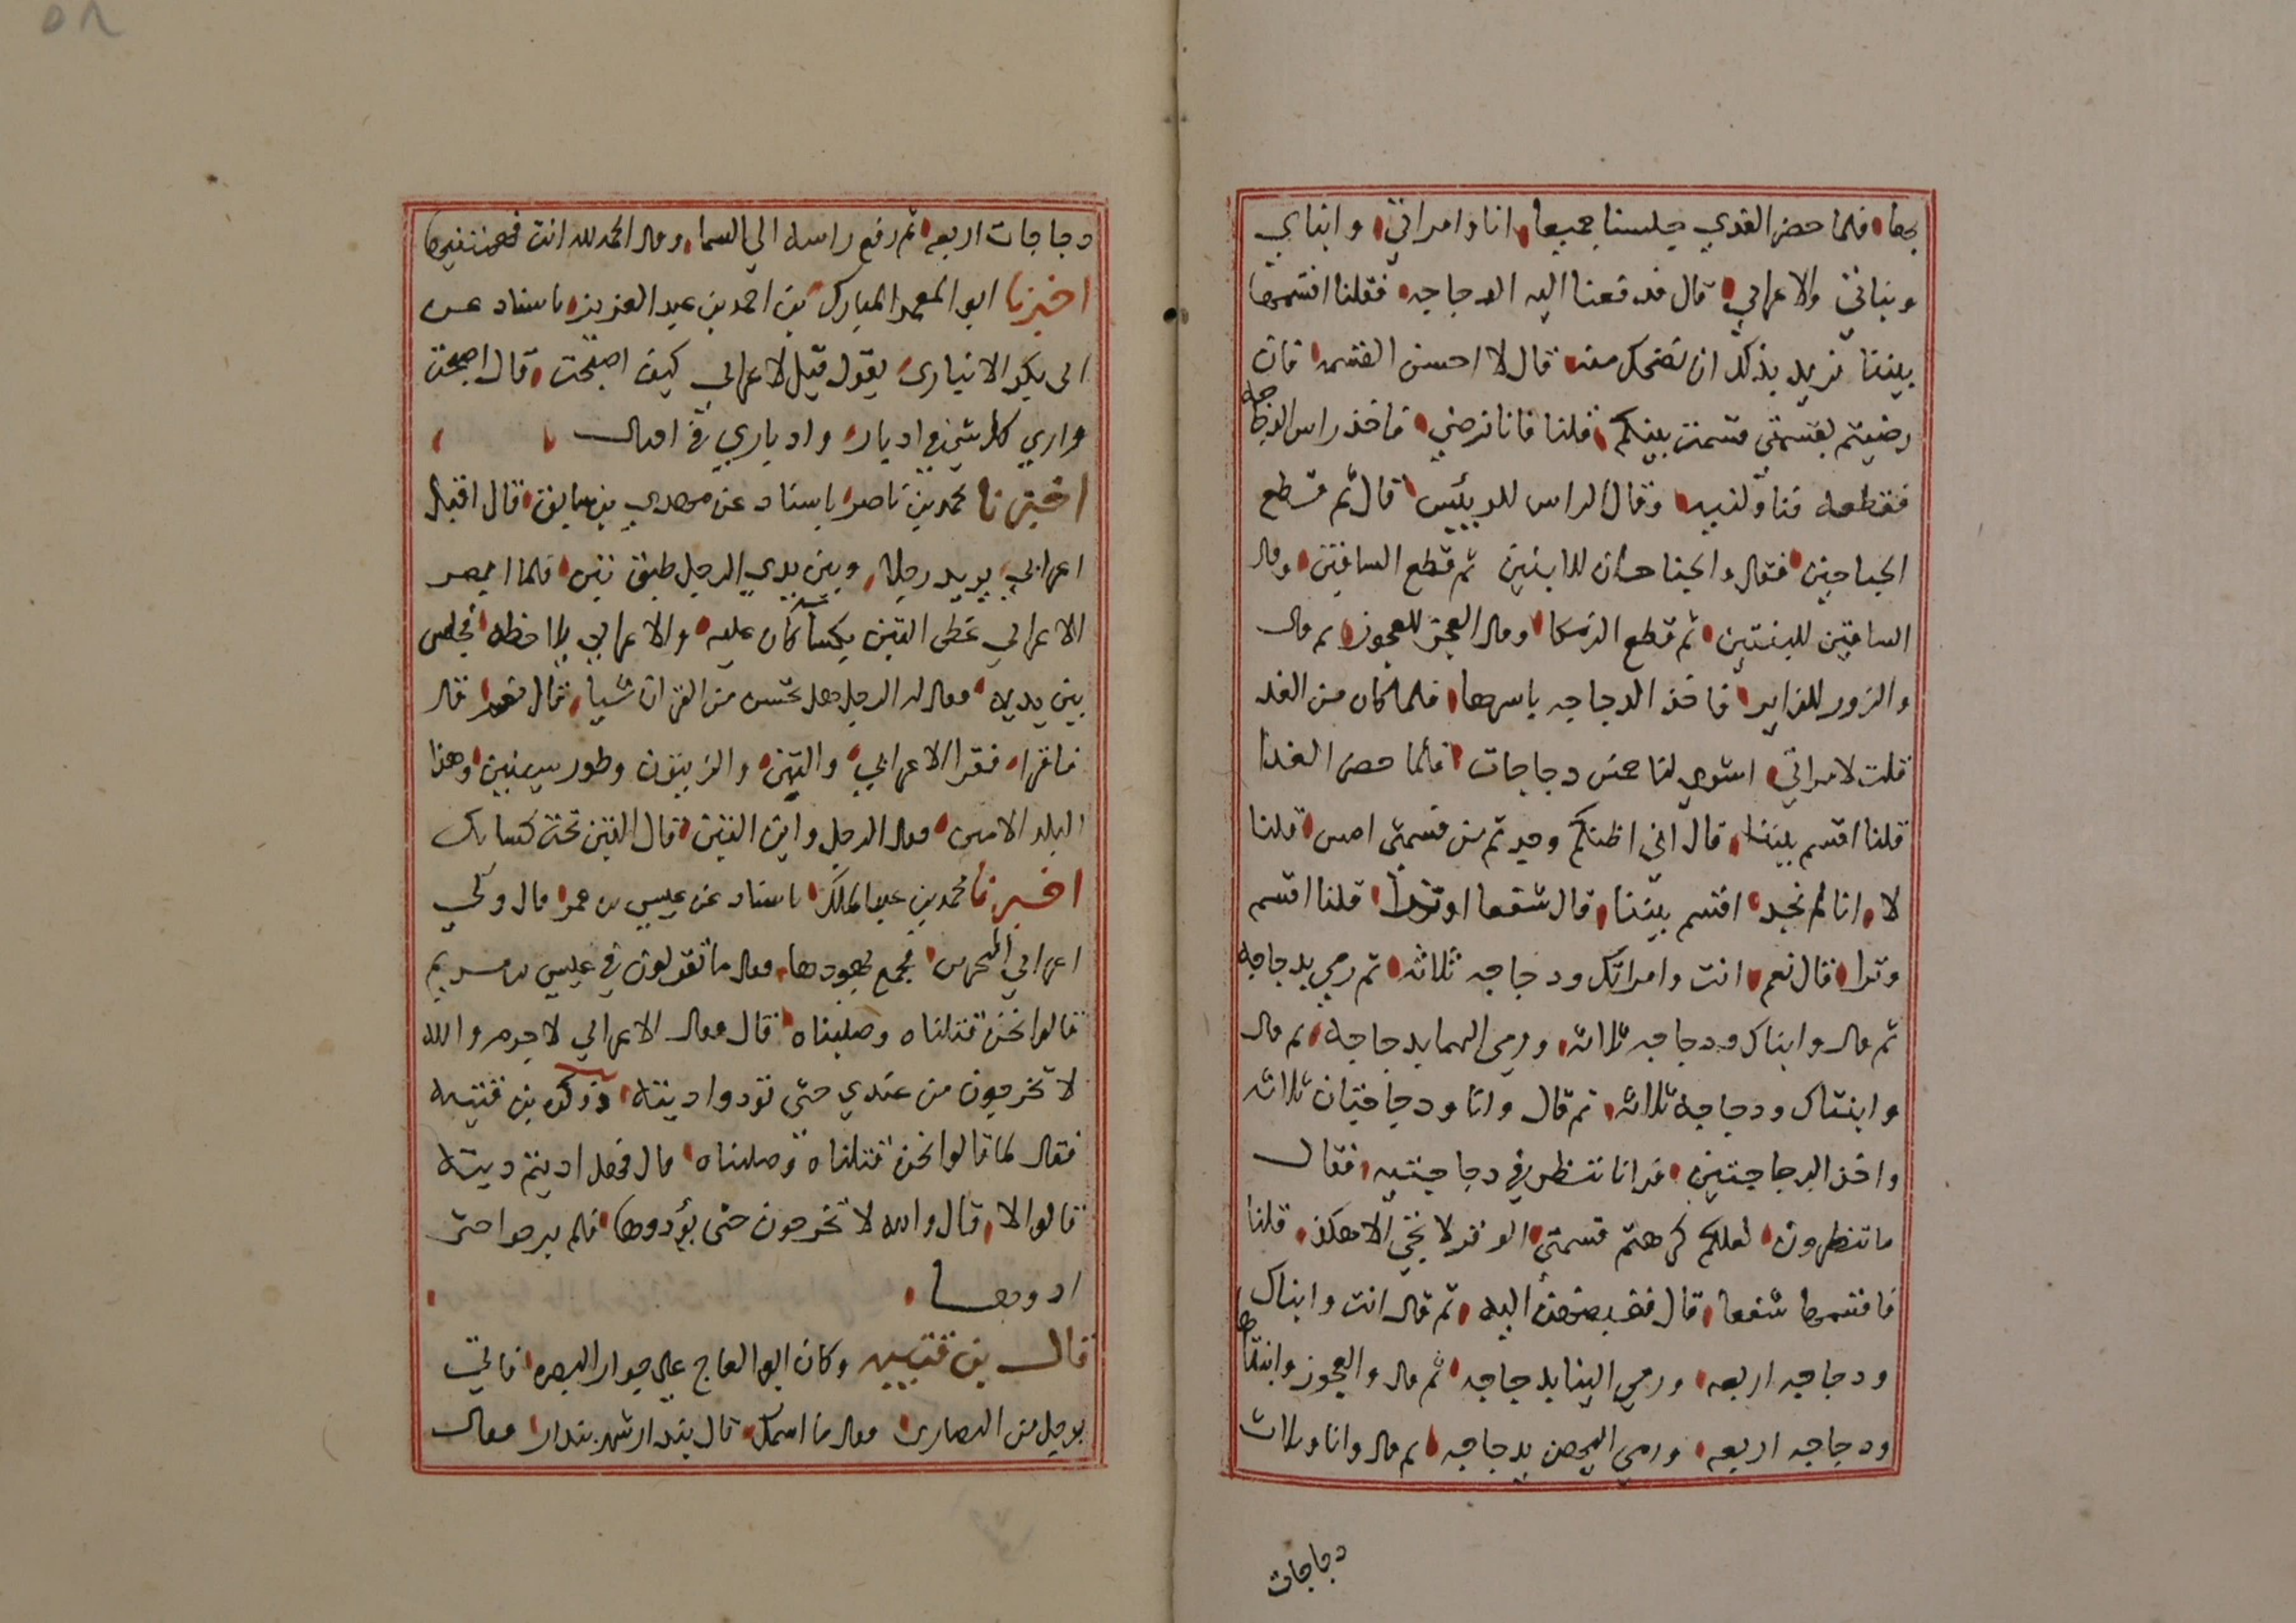 بها فلما حضر الغدي جلسنا جميعا انا وامراتي وابناي
وبناتي والاعرابي قال فدفعنا اليه الدجاجه فقلنا اقسمها
بيننا نريد بذلك ان نضحك منه قال لا احسن القسمه فان
رضيتم بقسمتي قسمت بينكم قلنا فانا نرضي فاخذ راس الدجاجه
فقطعه فناولنيه وقال الراس للرييس قال ثم قطع
الجناحين فقال والجناحان للابنين ثم قطع الساقين وقال
الساقين للبنتين ثم قطع الزمكا وقال العجز للعجوز ثم قال
والزور للزاير فاخذ الدجاجه باسرها فلما كان من الغد
قلت لامراتي اشوي لنا خمس دجاجات فلما حضر الغدا
قلنا اقسم بيننا قال اني اظنكم وجدتم من قسمتي امس قلنا
لا انا لم نجد اقسم بيننا قال شفعا او وترا قلنا اقسم
وترا قال نعم انت وامراتك ودجاجه ثلاثه ثم رمي بدجاجه
ثم قال وابناك ودجاجه ثلاثه ورمي اليهما بدجاجه ثم قال
وابنتاك ودجاجه ثلاثه ثم قال وانا ودجاجتان ثلاثه
واخذ الدجاجتين فرانا ننظر في دجاجتيه فقال
ما تنظرون لعلكم كرهتم قسمتي الوتر لا يجي الا هكذا قلنا
فاقسمها شفعا قال فقبضهن اليه ثم قال انت وابناك
ودجاجه اربعه ورمي الينا بدجاجه ثم قال والعجوز وابنتاها
ودجاجه اربعه ورمي اليهن بدجاجه ثم قال وانا وثلاث
دجاجات
دجاجات اربعه ثم رفع راسه الي السما وقال الحمد لله انت فهمتنيها
اخبرنا ابو المعمر المبارك بن احمد بن عبد العزيز باسناد عن
ابي بكر الانباري يقول قيل لاعرابي كيف اصبحت قال اصبحت
واري كل شي في ادبار وادباري في اقبال
اخبرنا محمد بن ناصر باسناد عن مهدي بن سابق قال اقبل
اعرابي يريد رجلا وبين يدي الرجل طبق تين فلما ابصر
الاعرابي غطي التين بكسا كان عليه والاعرابي يلاحظه فجلس
بين يديه فقال له الرجل هل تحسن من القران شيا قال نعم قال
فاقرا فقرا الاعرابي والتين والزيتون وطور سينين وهذا
البلد الامين فقال الرجل واين التين قال التين تحت كسايك
اخبرنا محمد بن عبد الملك باسناد عن عيسي بن عمر قال ولي
اعرابي البحرين فجمع يهودها فقال ما تقولون في عيسي بن مريم
قالوا نحن قتلناه وصلبناه قال فقال الاعرابي لا جرم والله
لا تخرجون من عندي حتي تودوا ديته وذكره بن قتيبه
فقال لما قالوا نحن قتلناه وصلبناه قال فهل اديتم ديته
قالوا لا قال والله لا تخرجون حتي يؤدوها فلم يبرحوا حتي
ادوها
قال بن قتيبه وكان ابو العاج علي جوار البصره فاتي
برجل من النصاري فقال ما اسمك قال بندار شهر بندار فقال